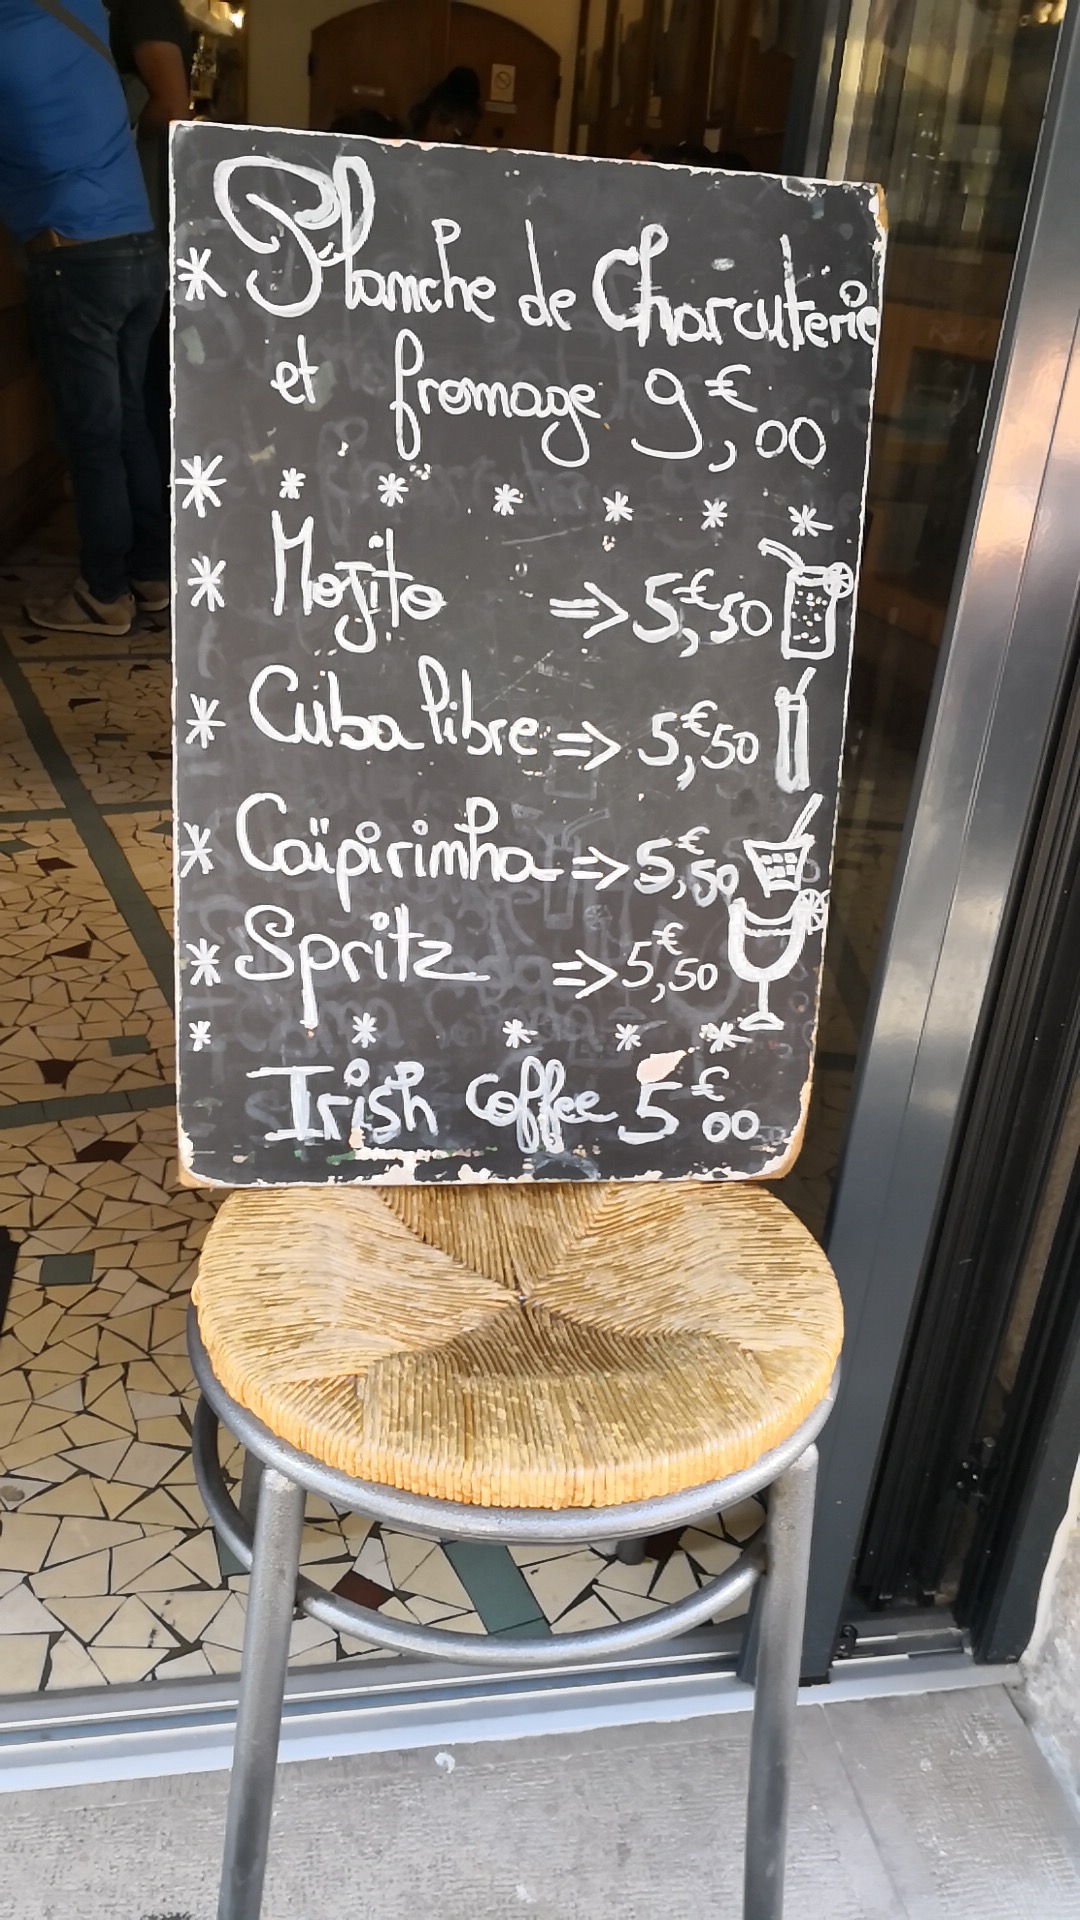 * Planche de Charcuterie
et fromage 9,€00
* * * * * * *
* Mojito => 5,€50
* Cuba libre => 5,€50
* Caïpirinha => 5,€50
* Spritz => 5,€50
* * * * *
Irish Coffee 5€00